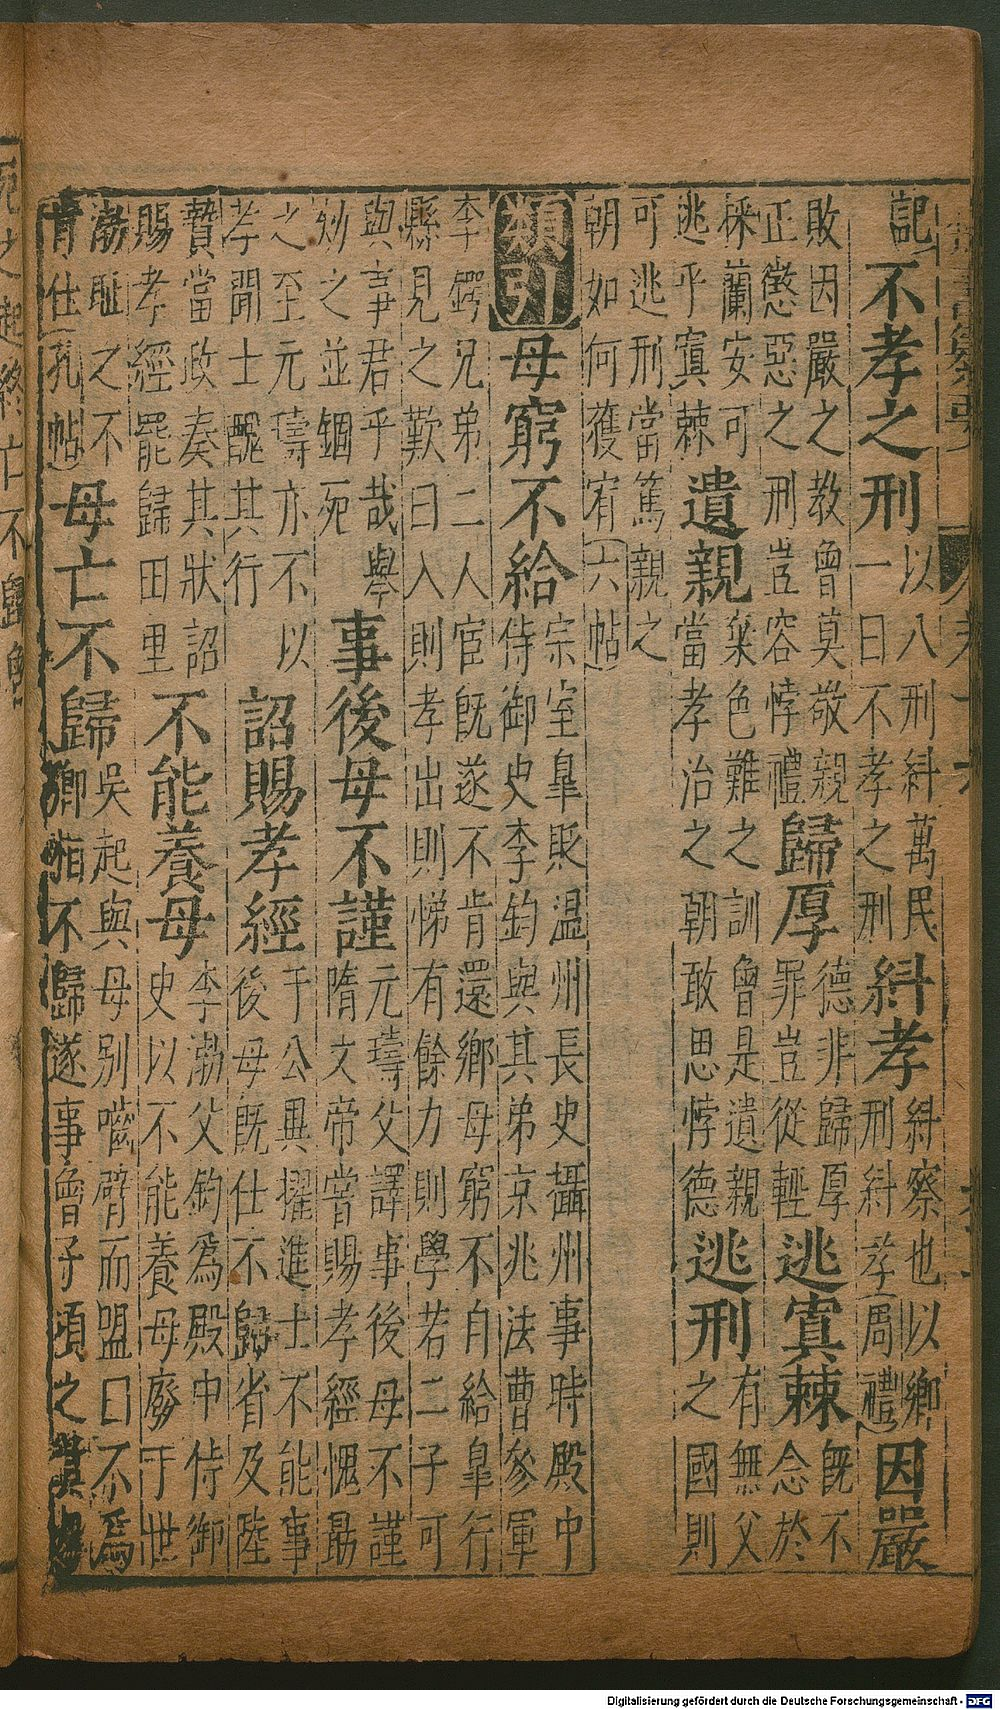 記不孝之刑以八刑糾萬民一曰不孝之刑糾孝糾察也以鄉刑糾孝周禮因嚴
敗因嚴之教曾莫敬親正懲惡之刑豈容悖禮歸厚德非歸厚罪豈從輕逃寘棘既不念於
棌蘭安可逃乎寘棘遺親棄色難之訓曾是遺親當孝治之朝敢思悖德逃刑有無父之國則
可逃刑當篤親之朝如何獲宥六帖
類引母窮不給宗室皐貶温州長史攝州事時殿中侍御史李鈞與其弟京兆法曹參軍
李鍔兄弟二人宦既遂不肯還鄉母窮不自給皐行縣見之歎曰入則孝出則悌有餘力則學若二子可
與事君乎哉舉劾之並錮死事後母不謹元璹父譯事後母不謹隋文帝嘗賜孝經愧勗
之至元璹亦不以孝聞士醜其行詔賜孝經于公異擢進士不能事後母既仕不歸省及陸
贄當政奏其狀詔賜孝經罷歸田里不能養母李渤父鈞為殿中侍御史以不能養母廢于世
渤恥之不肯仕孔帖母亡不歸吳起與母別嚙臂而盟曰不為卿相不歸遂事曾子頃之其母
Digitalisierung gefördert durch die Deutsche Forschungsgemeinschaft - DFG